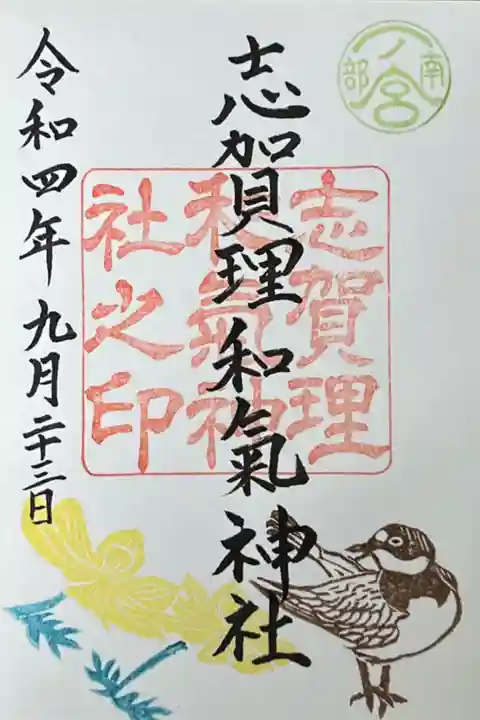 一ノ宮
南部
志賀理和氣神社
志賀理
和氣神
社之印
令和四年九月二十三日